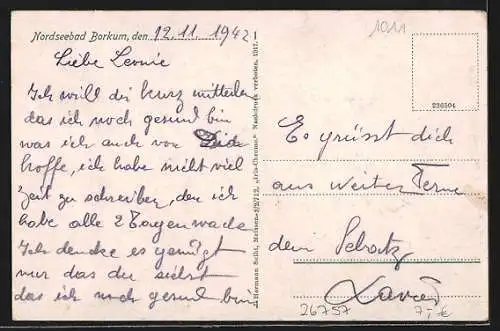 Nordseebad Borkum, den 12.11.1942
Liebe Leonie
Ich will dir kurz mitteilen
das ich noch gesund bin
was ich auch von
hoffe, ich habe nicht viel
Zeit zu schreiben, den ich
habe alle 2 Tagen wache
Ich dencke es genügt
nur das du siehst
das ich noch gesund bin
Hermann Seibt, Meissen „Iris-Chromo“ Nachdruck verboten. 1917.
1011
236504
Es grüsst dich
aus weiter Ferne
dein Schatz
26757
7,- €